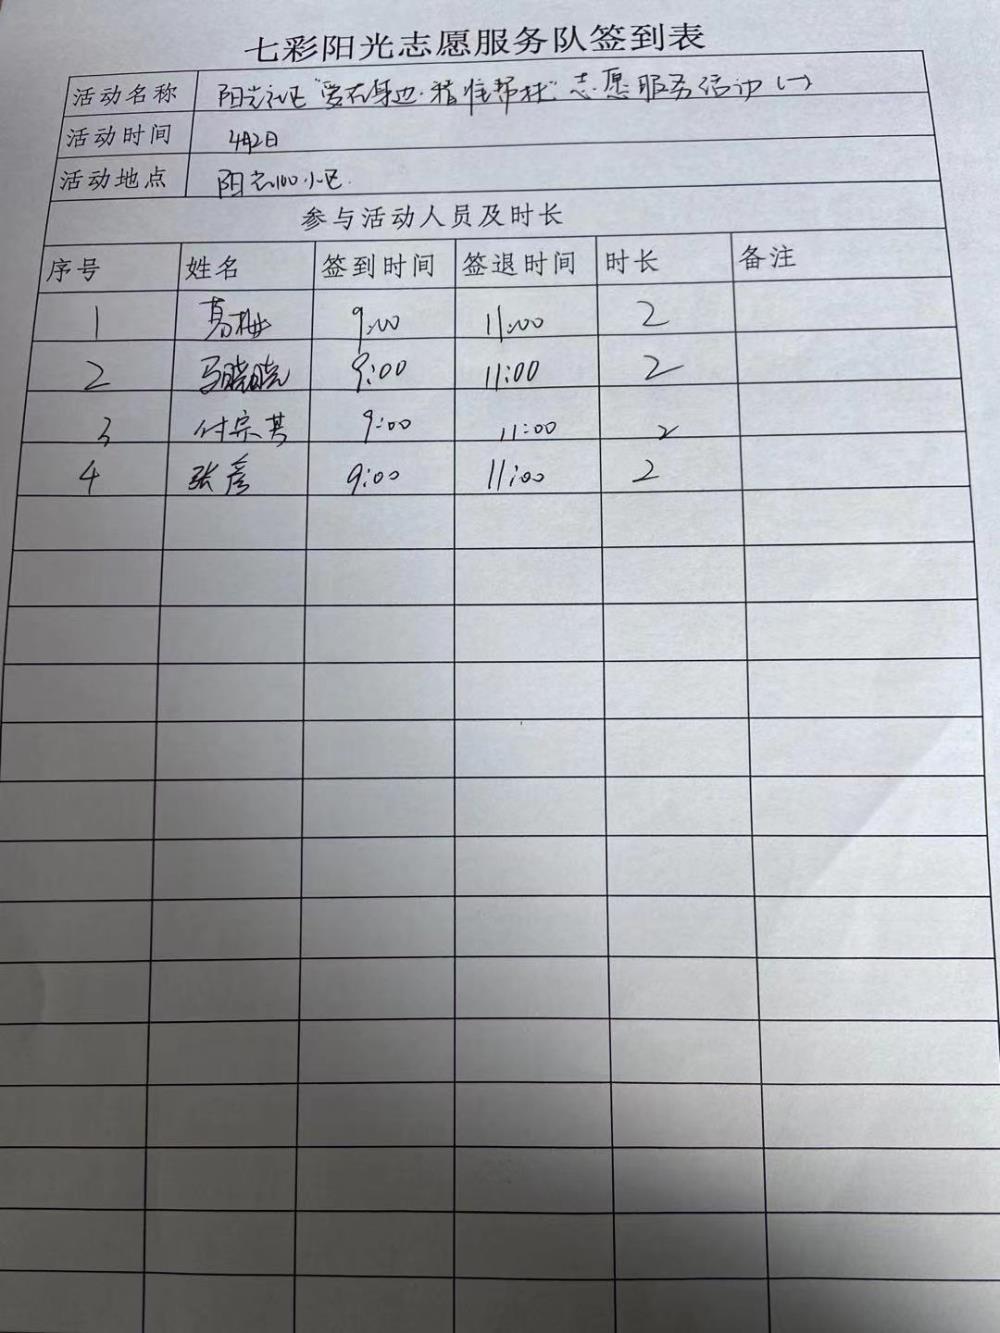 七彩阳光志愿服务队签到表
活动名称 阳光社区“爱在身边·精准帮扶”志愿服务活动(一)
活动时间 4月2日
活动地点 阳光100小区.
参与活动人员及时长
序号 姓名 签到时间 签退时间 时长 备注
1 葛梅 9:00 11:00 2
2 马晓晓 9:00 11:00 2
3 付宗其 9:00 11:00 2
4 张彦 9:00 11:00 2